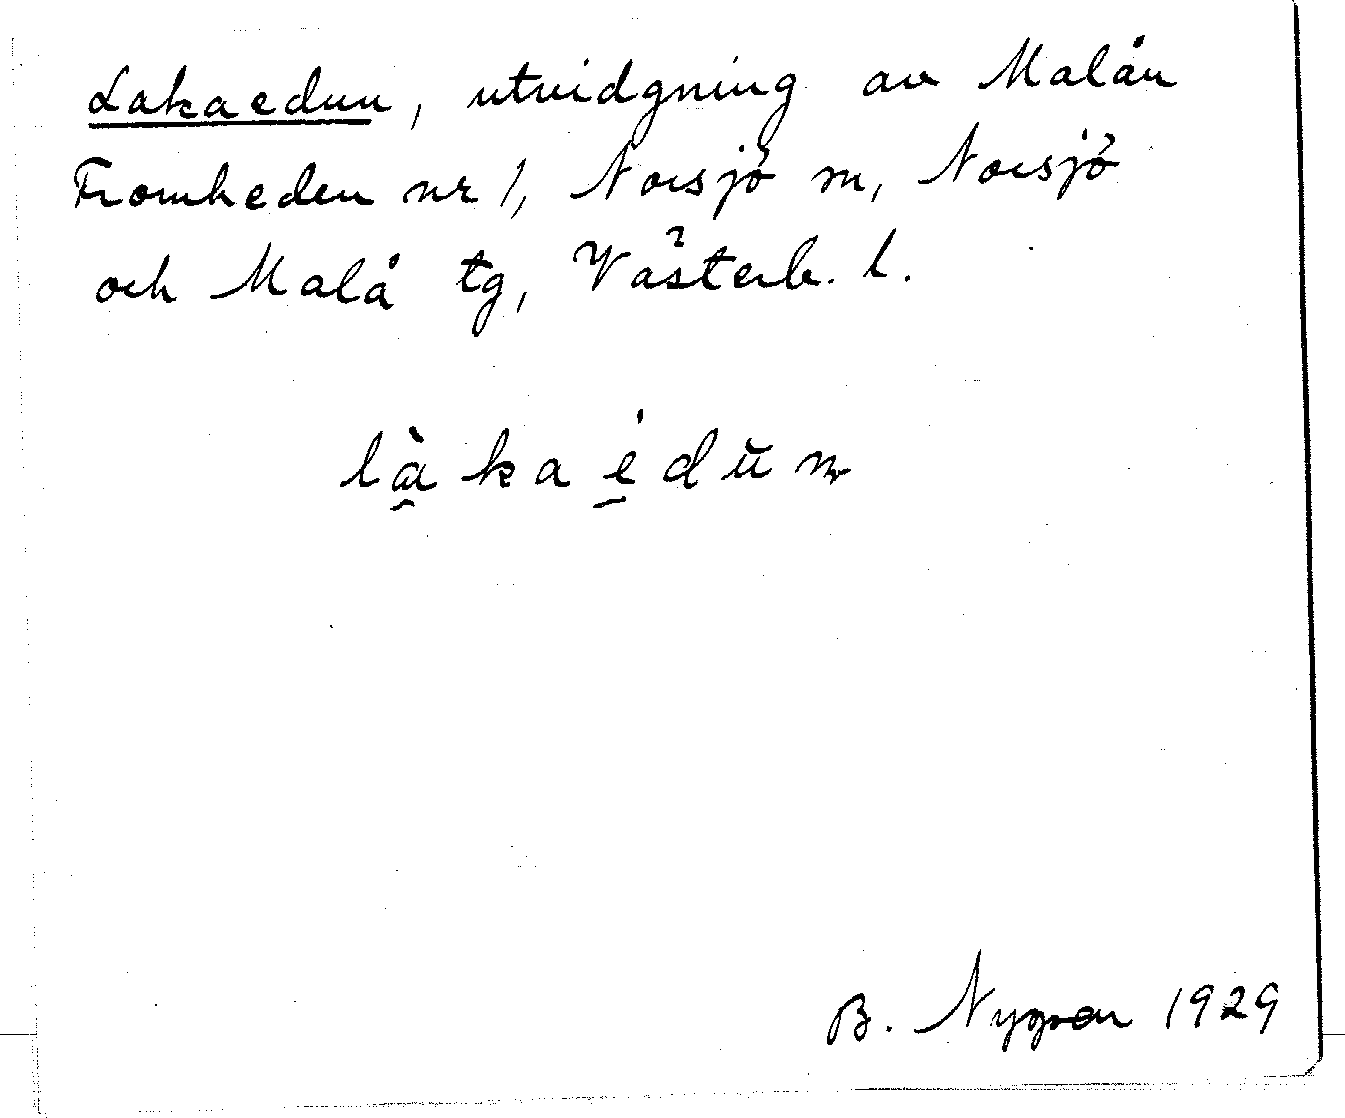 Lakaedun, utvidgning av Malån
Fromheden nr 1, Norsjö sn, Norsjö
och Malå tg, Västerb. l.
làkaédŭn
B. Nygren 1929